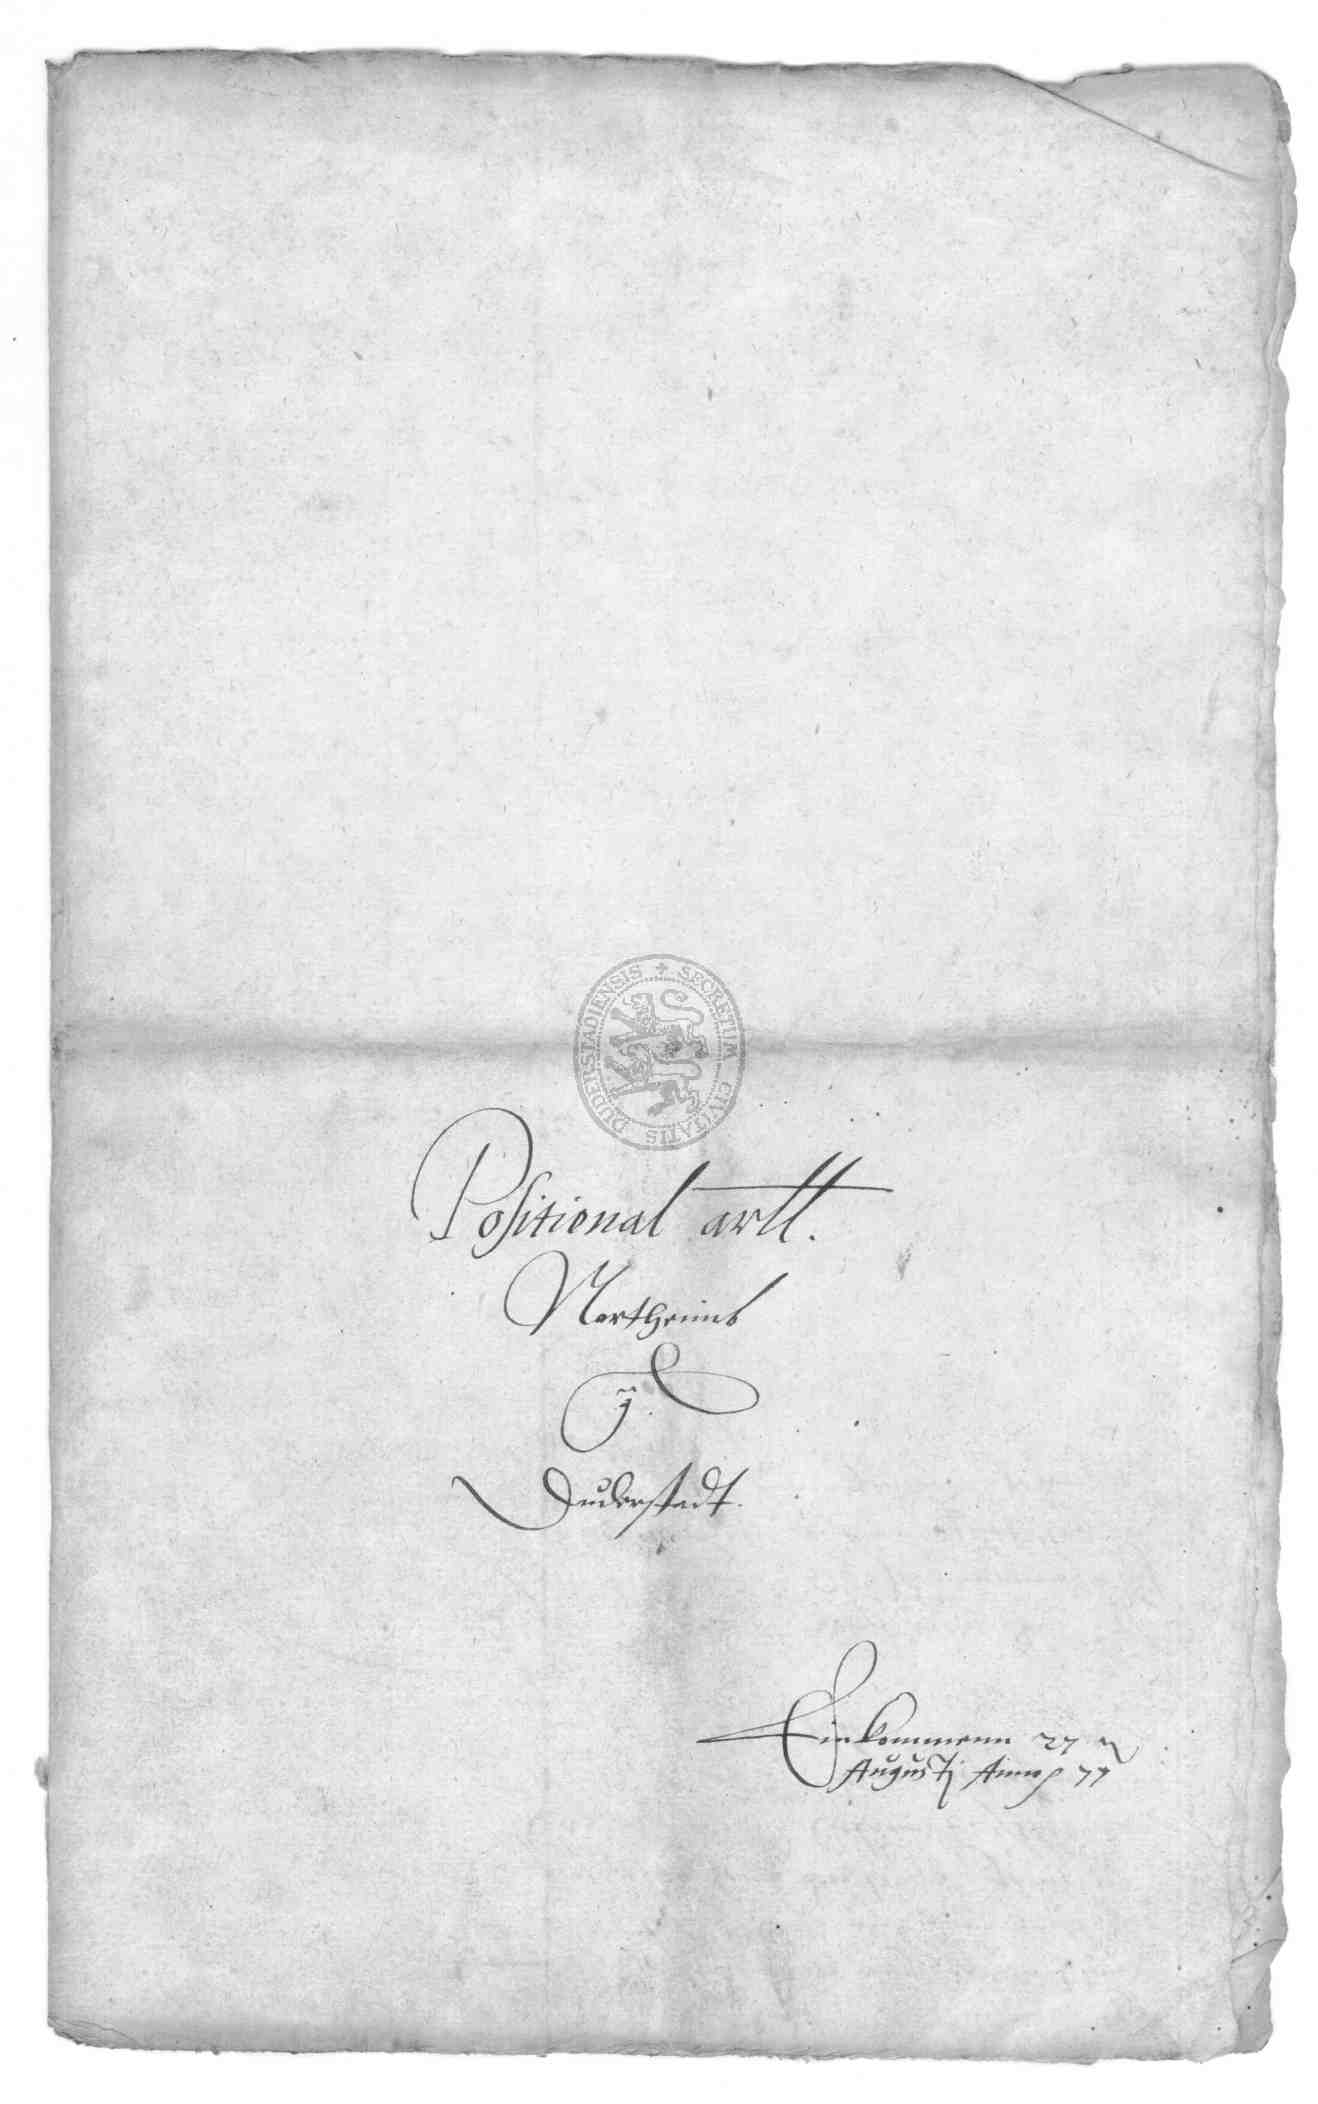 SECRETUM CIVITATIS DUDERSTADIENSIS
Positional artl.
Northeims
Duderstadt.
Einkommenn 27
Augusti Anno 77